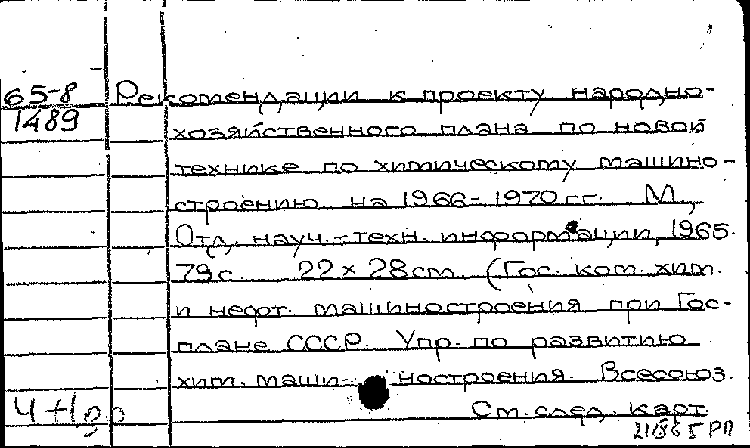 65-8
1489
Рекомендации к проекту народно-
хозяйственного плана по новой
технике по химическому машино-
строению на 1966-1970 гг. М.,
Отд. науч.-техн. информации, 1965.
79 с. 22 × 28 см. (Гос. ком. хим.
и нефт. машиностроения при Гос-
плане СССР. Упр. по развитию
хим. маши- ностроения. Всесоюз.
См. след. карт